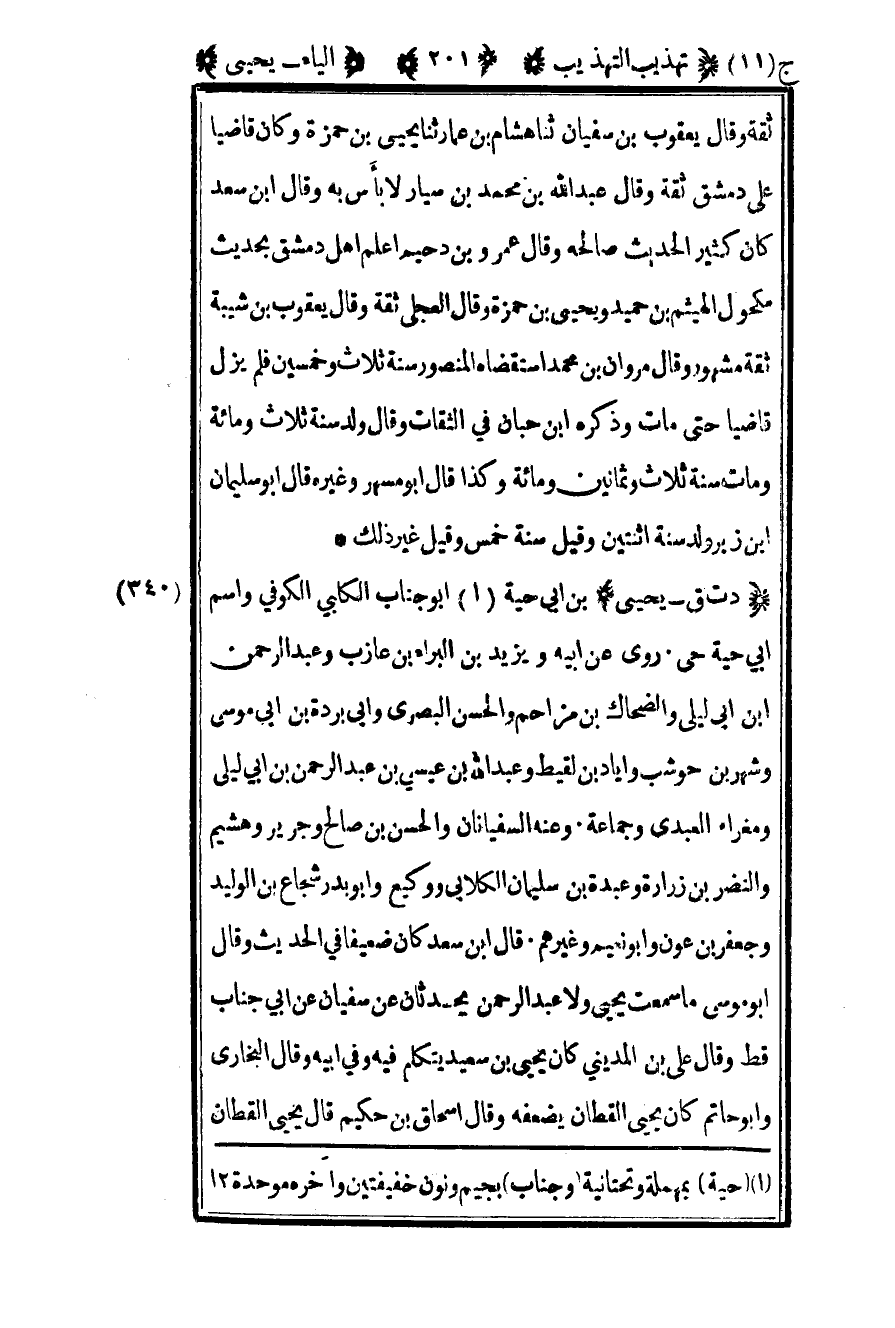 ج (١١) تهذيب التهذيب ٢٠١ الياء ـ يحيى
ثقة وقال يعقوب بن سفيان ثنا هشام بن عمار ثنا يحيى بن حمزة وكان قاضيا
على دمشق ثقة وقال عبدالله بن محمد بن سيار لا بأس به وقال ابن سعد
كان كثير الحديث صالحه وقال عمرو بن دحيم اعلم اهل دمشق بحديث
مكحول الهيثم بن حميد ويحيى بن حمزة وقال العجلي ثقة وقال يعقوب بن شيبة
ثقة مشهور وقال مروان بن محمد استقضاه المنصور سنة ثلاث وخمسين فلم يزل
قاضيا حتى مات وذكره ابن حبان في الثقات وقال ولد سنة ثلاث ومائة
ومات سنة ثلاث وثمانين ومائة وكذا قال ابو مسهر وغيره قال ابو سليمان
ابن زبر ولد سنة اثنتين وقيل سنة خمس وقيل غير ذلك *
(٣٤٠) دت ق ـ يحيى بن ابي حية (١) ابو جناب الكلبي الكوفي واسم
ابي حية حى · روى عن ابيه ويزيد بن البراء بن عازب وعبد الرحمن
ابن ابى ليلى والضحاك بن مزاحم والحسن البصرى وابى بردة بن ابي موسى
وشهر بن حوشب واياد بن لقيط وعبدالله بن عيسي بن عبد الرحمن بن ابي ليلى
ومغراء العبدى وجماعة · وعنه السفيانان والحسن بن صالح وجرير وهشيم
والنضر بن زرارة وعبدة بن سليمان الكلابي ووكيع وابو بدر شجاع بن الوليد
وجعفر بن عون وابو نعيم وغيرهم · قال ابن سعد كان ضعيفا في الحديث وقال
ابو موسى ما سمعت يحيى ولا عبد الرحمن يحدثان عن سفيان عن ابي جناب
قط وقال على بن المديني كان يحيى بن سعيد يتكلم فيه وفي ابيه وقال البخارى
وابو حاتم كان يحيى القطان يضعفه وقال اسحاق بن حكيم قال يحيى القطان
(١) (حية) بمهملة وتحتانية (وجناب) بجيم ونون خفيفتين وآخره موحدة ١٢